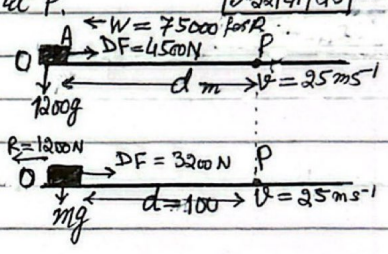 at P.
← W = 75000 for R
A
O → DF = 4500N P
← d m → v = 25 ms⁻¹
1200g
R = 1200N
O → DF = 3200N P
← d = 100 → v = 25 ms⁻¹
mg